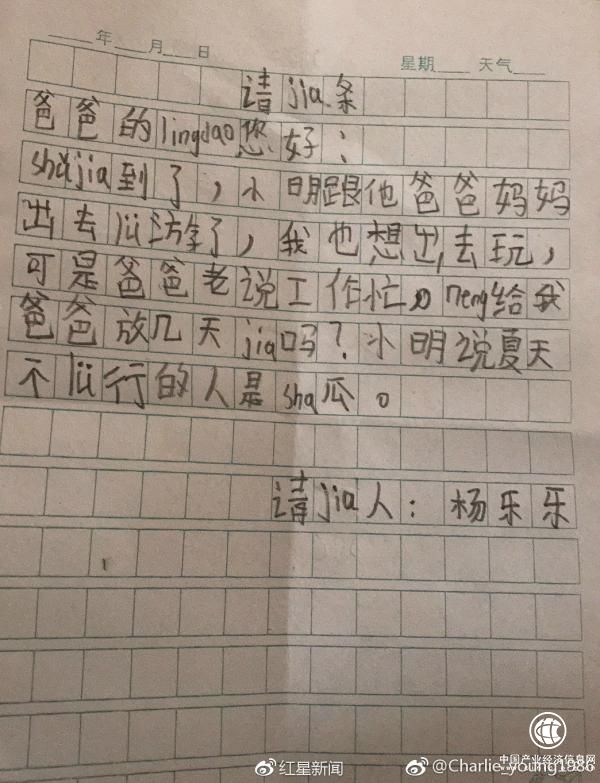 年 月 日 星期 天气
请jia条
爸爸的lingdao您好：
shǔjia到了，小明跟他爸爸妈妈
出去lǚ行了，我也想出去玩，
可是爸爸老说工作忙。neng给我
爸爸放几天jia吗？小明说夏天
不lǚ行的人是sha瓜。
请jia人：杨乐乐
中国产业经济信息网
红星新闻 @Charlie_young1986